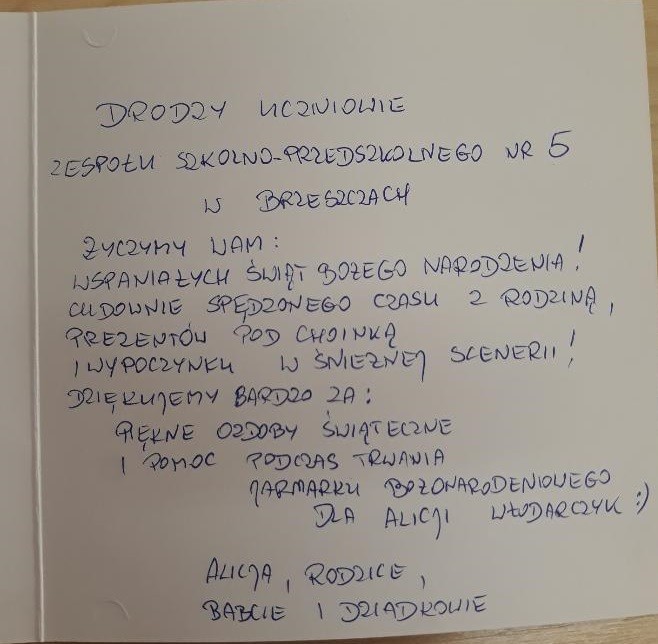 DRODZY UCZNIOWIE
ZESPOŁU SZKOLNO-PRZEDSZKOLNEGO NR 5
W BRZESZCZACH
ŻYCZYMY WAM:
WSPANIAŁYCH ŚWIĄT BOŻEGO NARODZENIA!
CUDOWNIE SPĘDZONEGO CZASU Z RODZINĄ,
PREZENTÓW POD CHOINKĄ
I WYPOCZYNKU W ŚNIEŻNEJ SCENERII!
DZIĘKUJEMY BARDZO ZA:
PIĘKNE OZDOBY ŚWIĄTECZNE
I POMOC PODCZAS TRWANIA
JARMARKU BOŻONARODENIOWEGO
DLA ALICJI WŁODARCZYK :)
ALICJA, RODZICE,
BABCIE I DZIADKOWIE